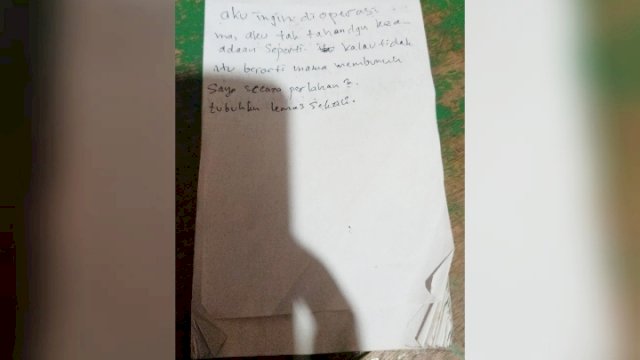 aku ingin di operasi
ma, aku tak tahan dgn kea-
adaan seperti kalau tidak
itu berarti mama membunuh
saya secara perlahan2.
tubuhku lemas sekali.